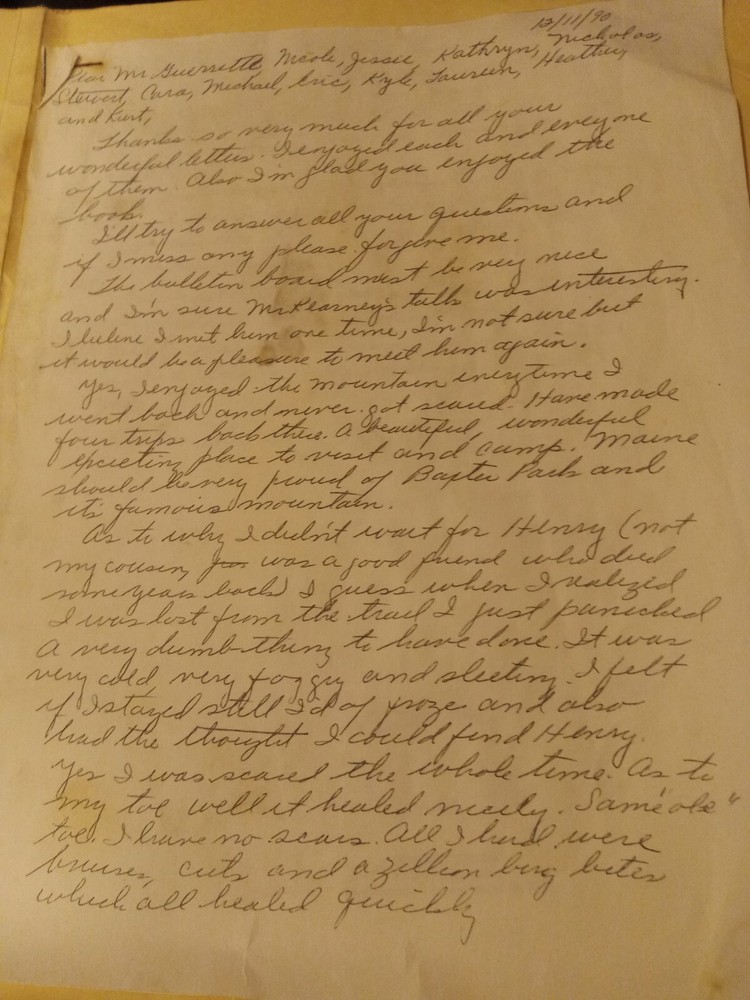 12/11/90
Dear Mr Guerrette Nicole, Jessie, Kathryn, Nicholas,
Stewart, Cara, Michael, Eric, Kyle, Laureen, Heather,
and Kurt,
Thanks so very much for all your
wonderful letters. I enjoyed each and everyone
of them. Also I'm glad you enjoyed the
book.
I'll try to answer all your questions and
if I miss any please forgive me.
The bulletin board must be very nice
and I'm sure Mr Kearney's talk was interesting.
I believe I met him one time, I'm not sure but
it would be a pleasure to meet him again.
Yes, I enjoyed the mountain everytime I
went back and never got scared. Have made
four trips back there. A beautiful, wonderful
place to visit and camp. Maine
should be very proud of Baxter Park and
its famous mountain.
As to why I didn't wait for Henry (not
my cousin, was a good friend who died
some years back) I guess when I realized
I was lost from the trail I just panicked
A very dumb thing to have done. It was
very cold very foggy and sleeting. I felt
if I stayed still I'd of froze and also
had the thought I could find Henry.
Yes I was scared the whole time. As to
my toe well it healed nicely. Same ole"
toe. I have no scars. All I had were
bruises, cuts and a zillion bug bites
which all healed quickly